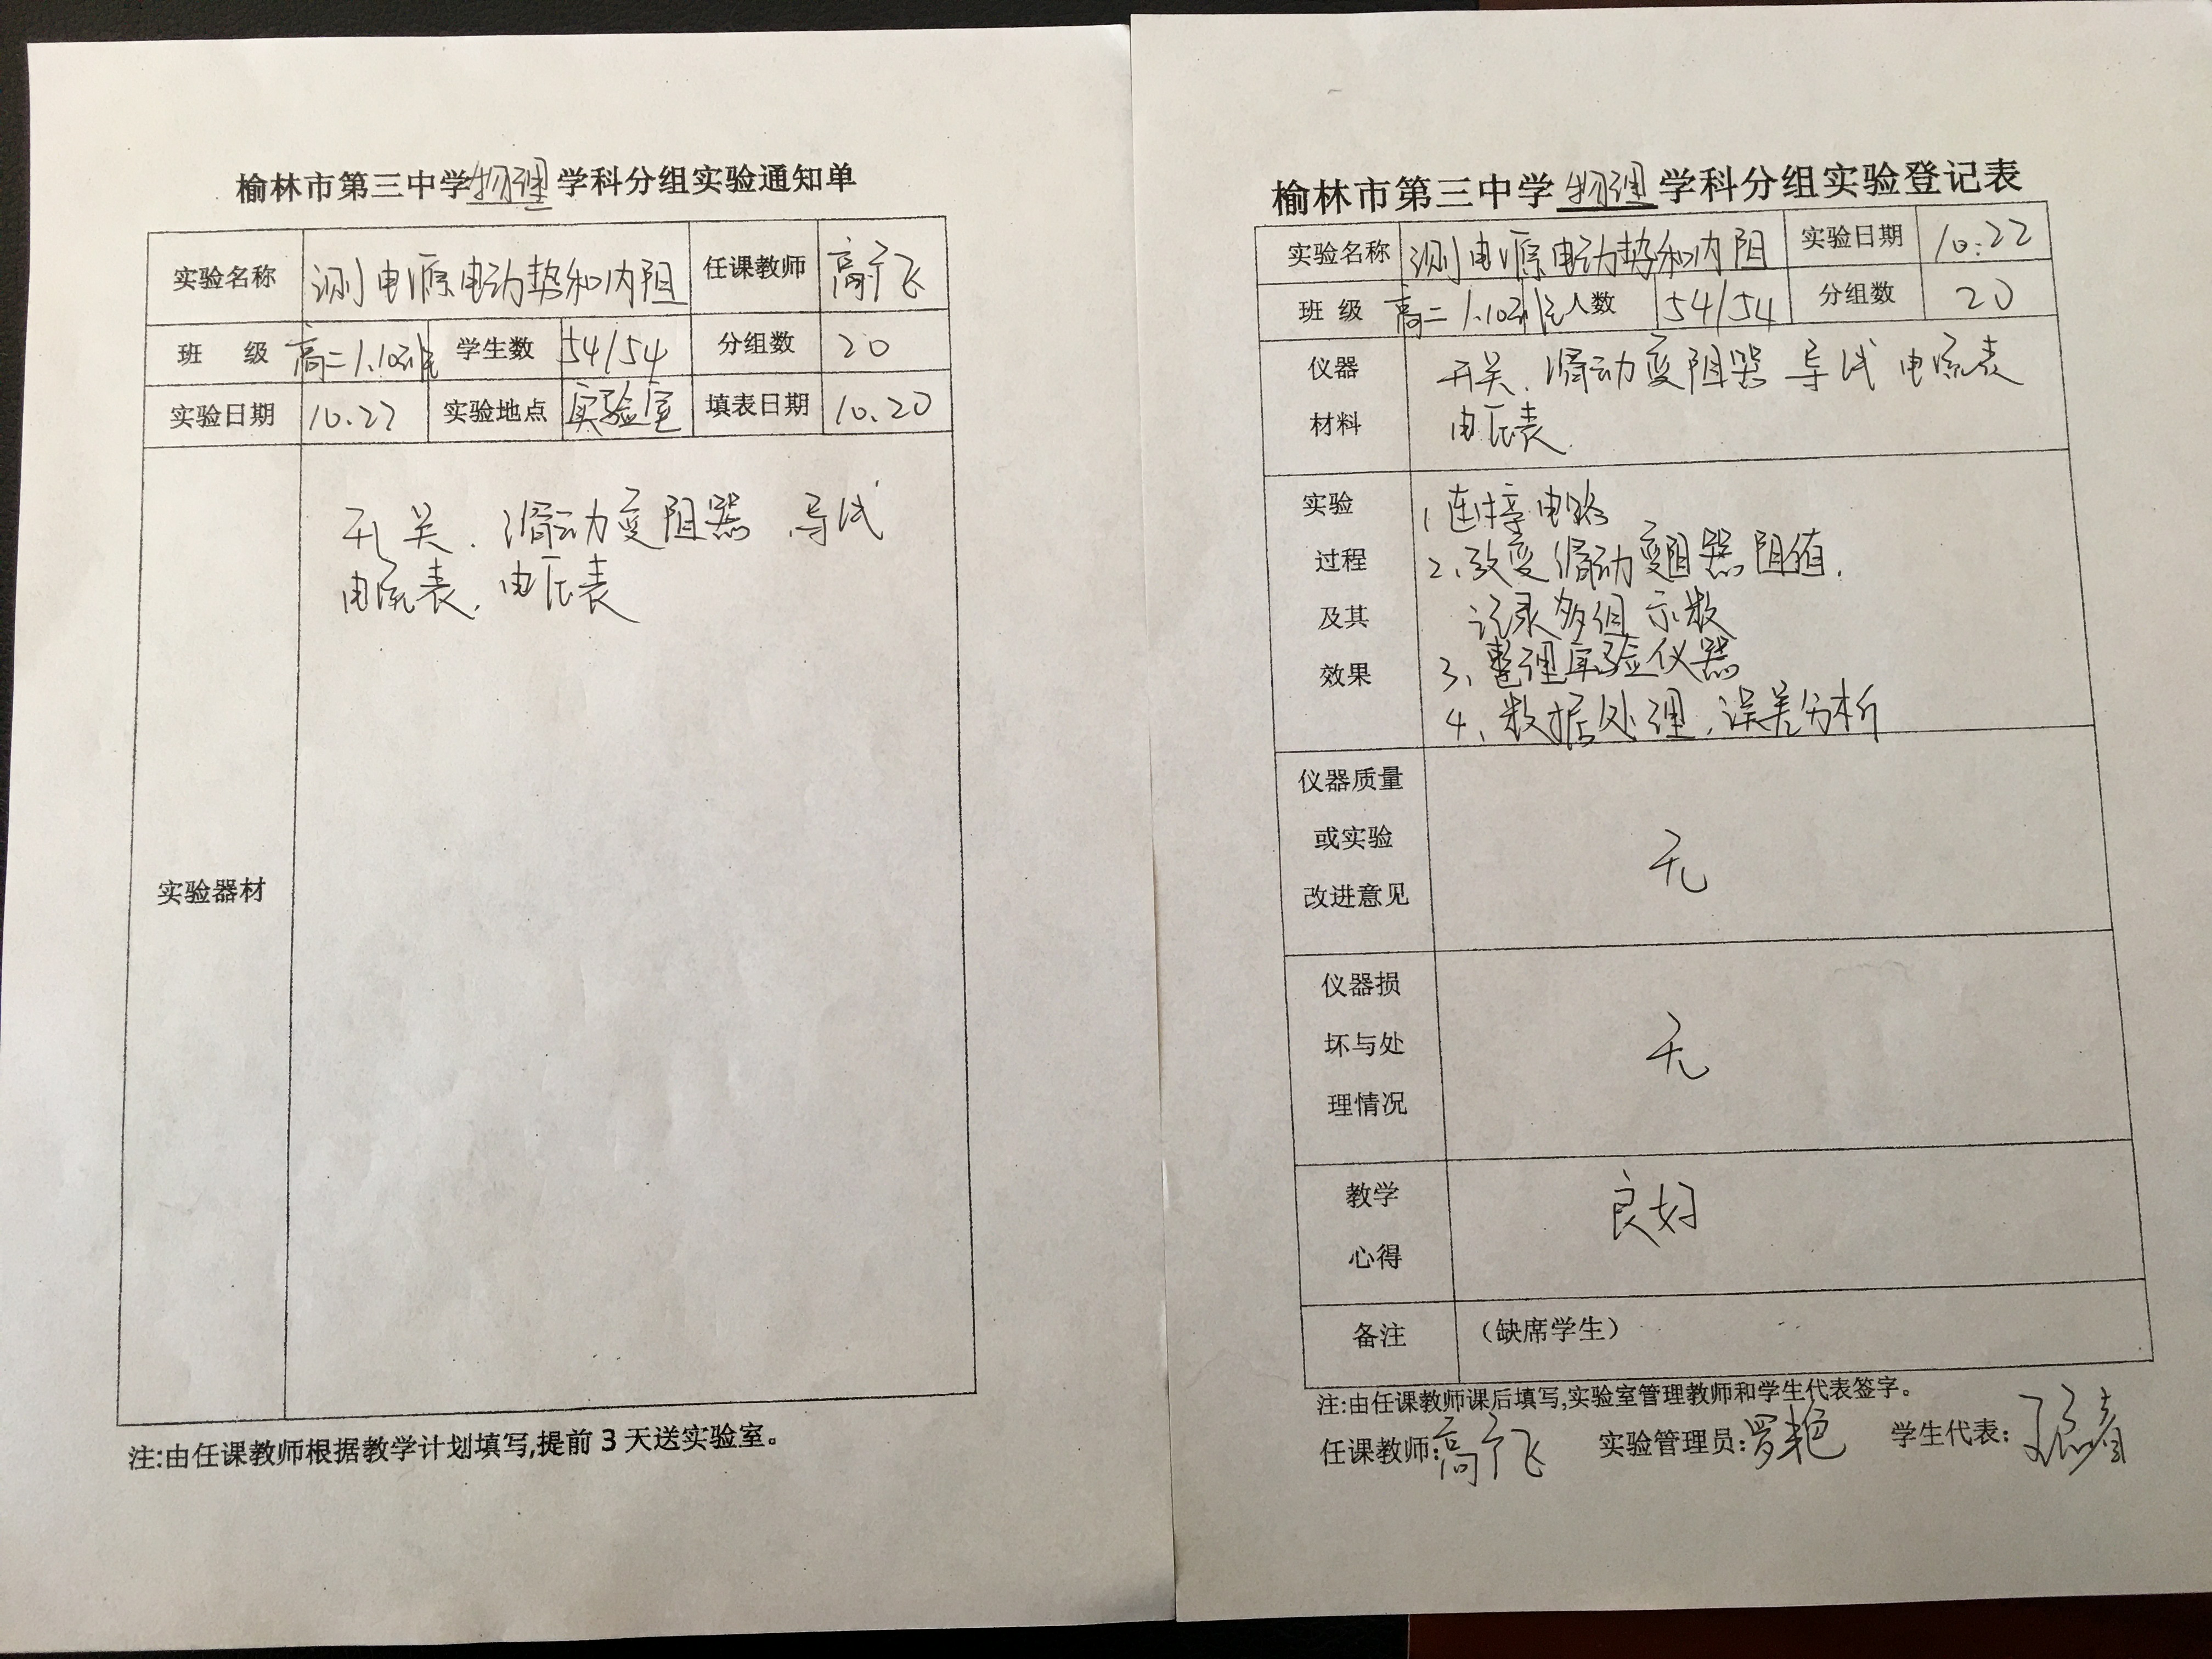 榆林市第三中学物理学科分组实验通知单
实验名称 测电源电动势和内阻 任课教师 高广飞
班 级 高二1.10班 学生数 54/54 分组数 20
实验日期 10.22 实验地点 实验室 填表日期 10.20
实验器材
开关、滑动变阻器 导线
电流表、电压表
注:由任课教师根据教学计划填写,提前3天送实验室。
榆林市第三中学物理学科分组实验登记表
实验名称 测电源电动势和内阻 实验日期 10.22
班 级 高二1.10班 人数 54/54 分组数 20
仪器
材料
开关、滑动变阻器 导线 电流表
电压表
实验
过程
及其
效果
1、连接电路
2、改变滑动变阻器阻值,
记录多组示数
3、整理实验仪器
4、数据处理,误差分析
仪器质量
或实验
改进意见
无
仪器损
坏与处
理情况
无
教学
心得
良好
备注 (缺席学生)
注:由任课教师课后填写,实验室管理教师和学生代表签字。
任课教师:高广飞 实验管理员:罗艳 学生代表: